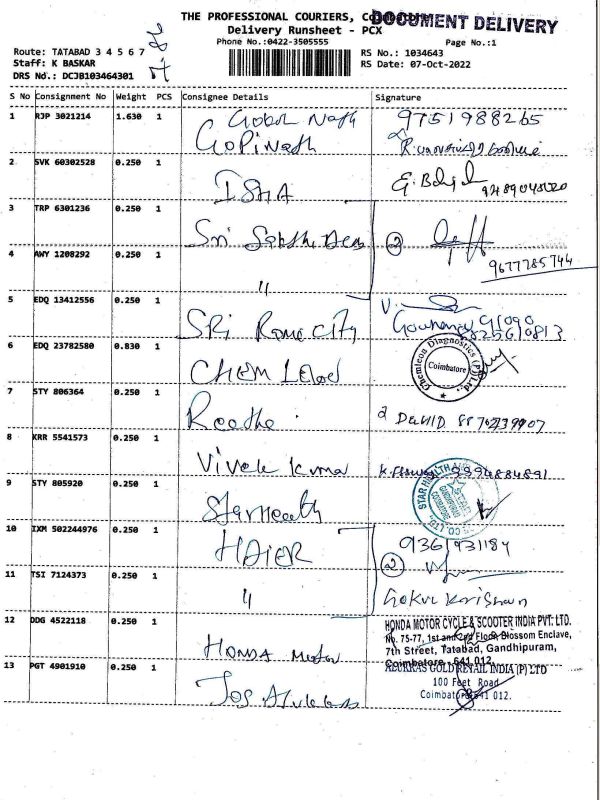 THE PROFESSIONAL COURIERS,
DOCUMENT DELIVERY
Delivery Runsheet - PCX
Phone No.:0422-3505555
Page No.:1
Route: TATABAD 3 4 5 6 7
Staff: K BASKAR
DRS No.: DCJB103464301
RS No.: 1034643
RS Date: 07-Oct-2022
S No Consignment No Weight PCS Consignee Details Signature
1 RJP 3021214 1.630 1 Gokul Nath 9751988265
GoPiNath
2 SVK 60302528 0.250 1 ISHA
3 TRP 6301236 0.250 1 Sri 2
4 AWY 1208292 0.250 1 " 9677785744
5 EDQ 13412556 0.250 1 SRi Rama city
6 EDQ 23782580 0.830 1 CHEM Chemicon Diagnostics (P) Ltd., Coimbatore
7 STY 806364 0.250 1 DAVID
8 KRR 5541573 0.250 1 Vivek Kumar 9994884891
9 STY 805920 0.250 1 StarHealth STAR HEALTH
10 IXM 502244976 0.250 1 HAIER 2
11 TSI 7124373 0.250 1 " Gokul Krishnan
12 DDG 4522118 0.250 1 HONDA Motor
HONDA MOTOR CYCLE & SCOOTER INDIA PVT. LTD.
No. 75-77, 1st and 2nd Floor, Blossom Enclave,
7th Street, Tatabad, Gandhipuram,
Coimbatore - 641 012.
13 PGT 4901910 0.250 1 Jos Alukkas
ALUKKAS GOLD RETAIL INDIA (P) LTD
100 Feet Road
Coimbatore-641 012.